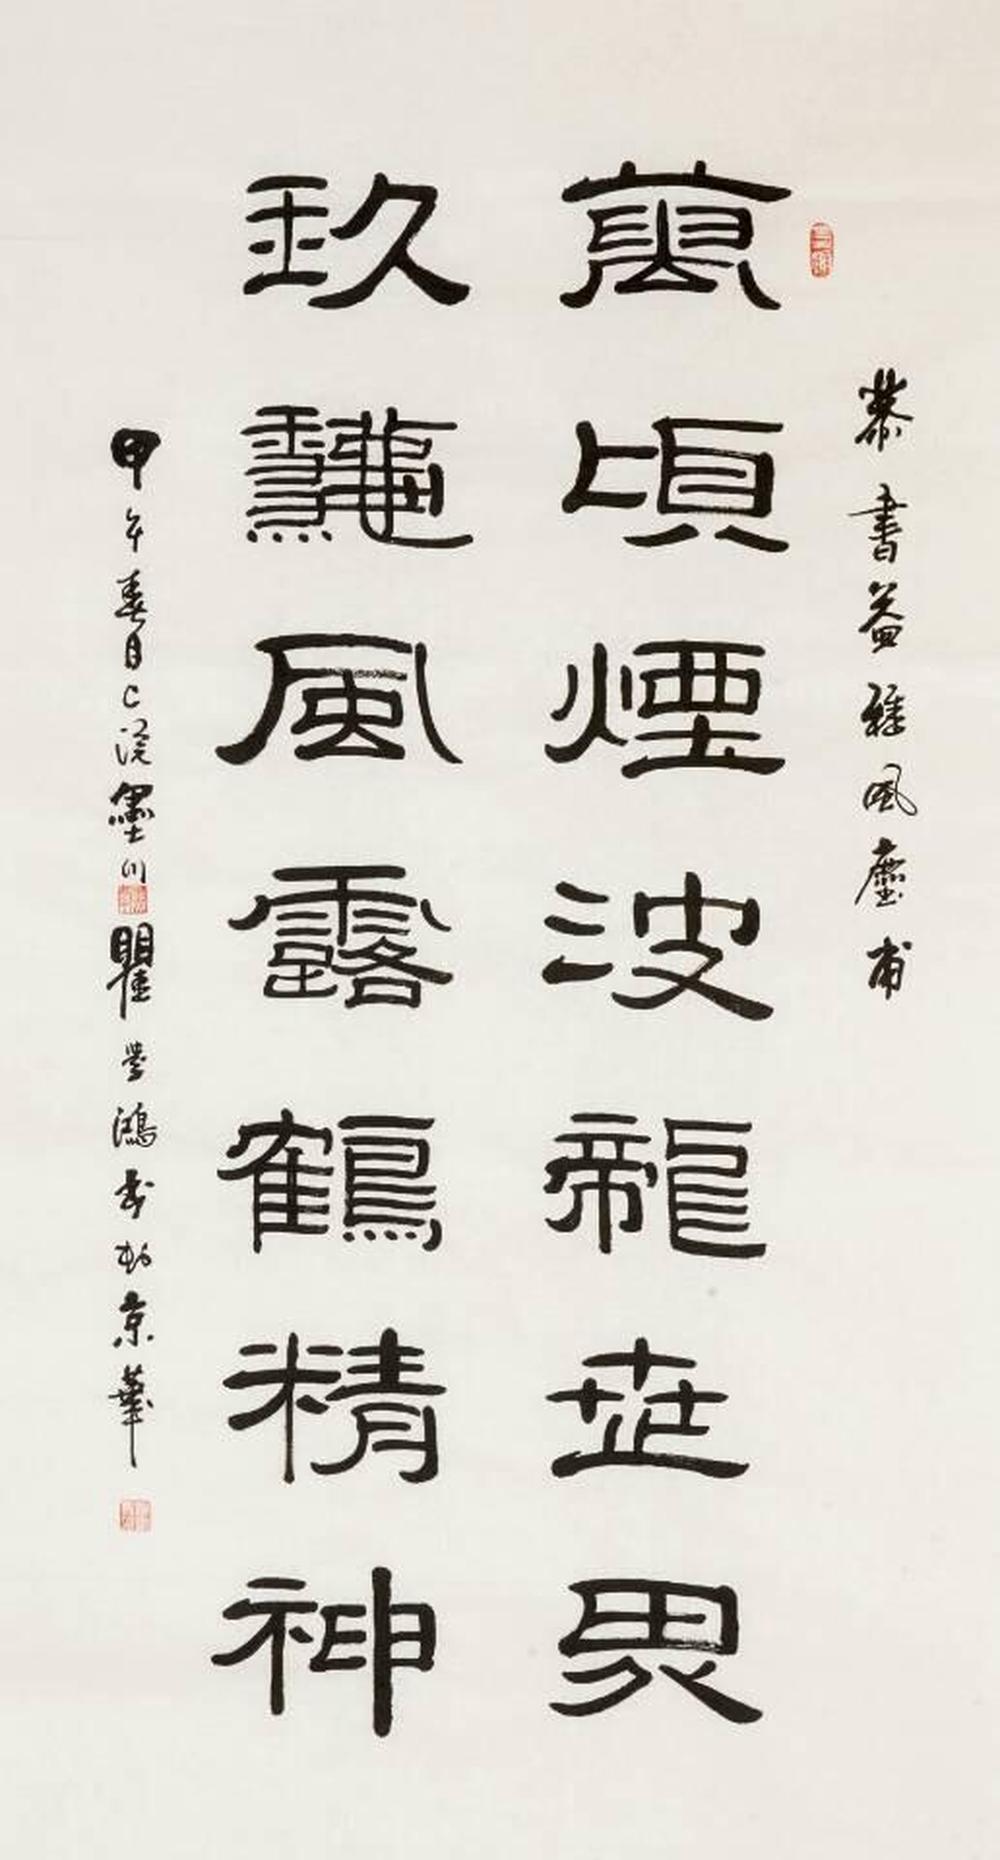 恭書益雅風塵甫
萬頃煙波龍世界
玖風露鶴精神
甲午春月浣墨川瞿學鴻書於京華